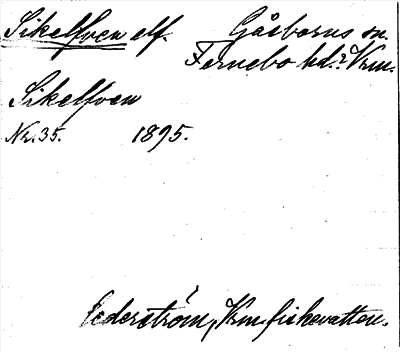 Sikelfven elf. Gåsborns sn.
Fernebo hd. Vrm.
Sikelfven
Nr. 35. 1895.
Cederström, Vrm. fiskevatten.